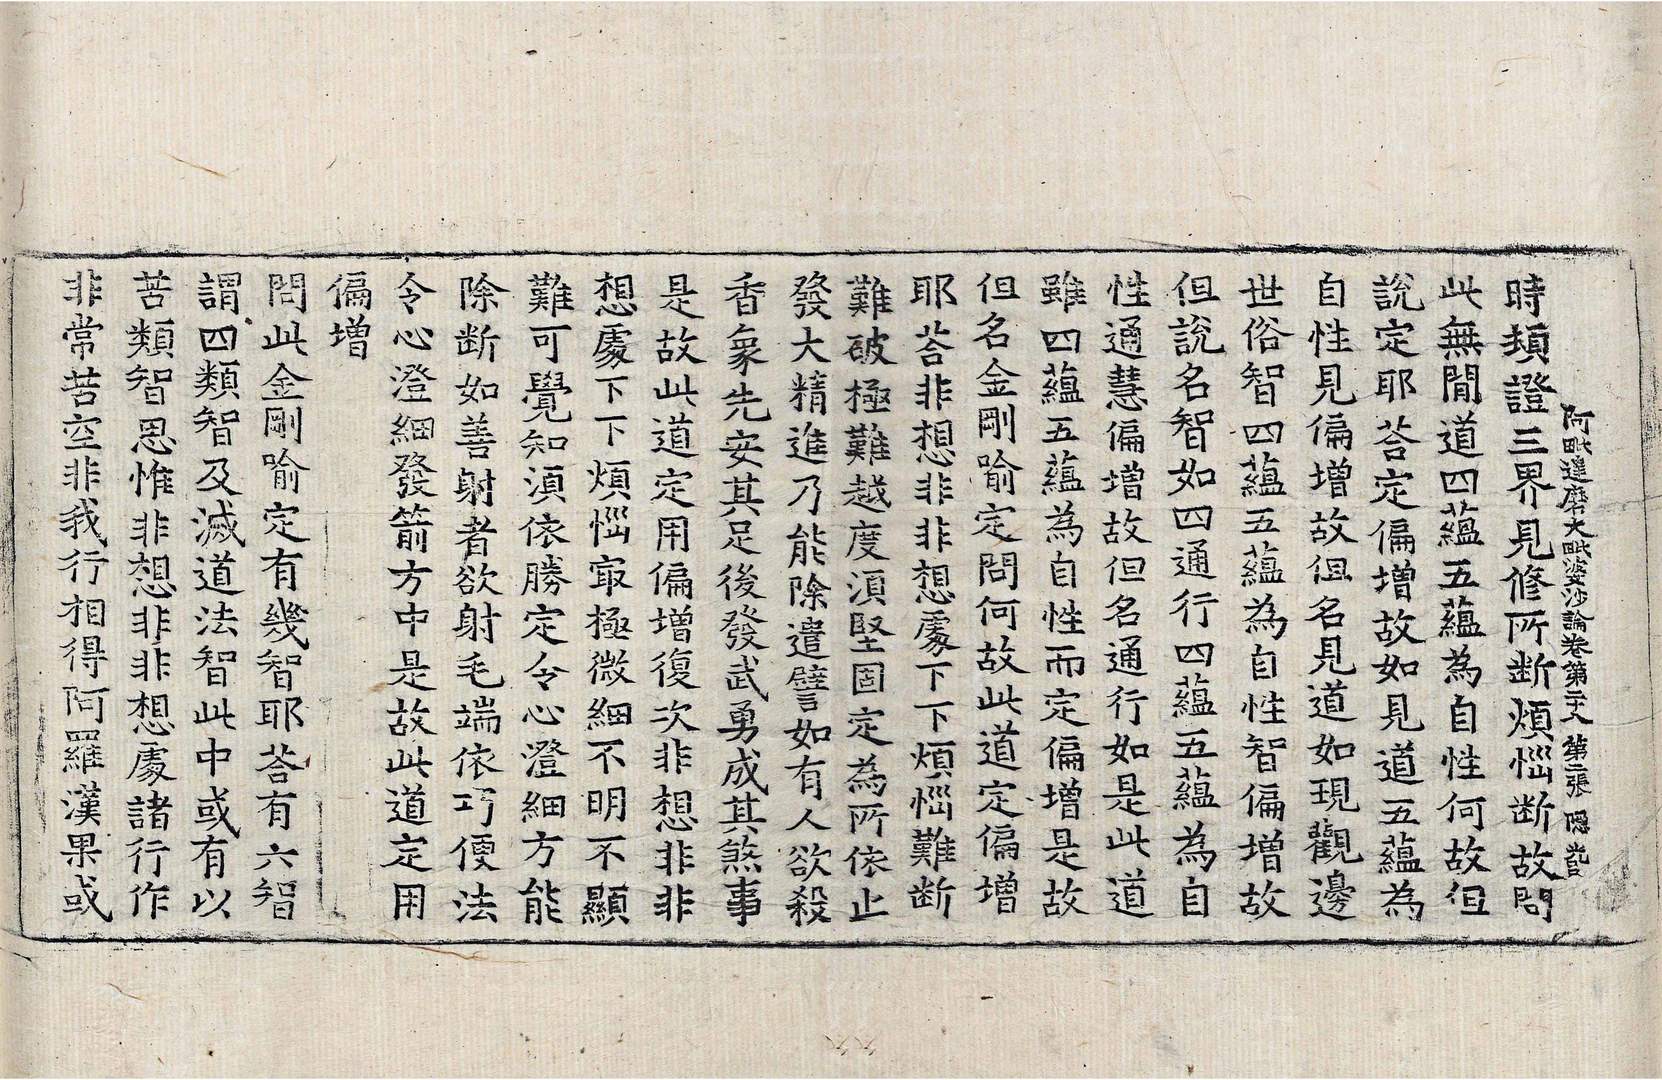 阿毗達磨大毗婆沙論卷第二十八 第二張 隱
時頓證三界見修所斷煩惱斷故問
此無間道四蘊五蘊為自性何故但
說定耶荅定偏增故如見道五蘊為
自性見偏增故但名見道如現觀邊
世俗智四蘊五蘊為自性智偏增故
但說名智如四通行四蘊五蘊為自
性通慧偏增故但名通行如是此道
雖四蘊五蘊為自性而定偏增是故
但名金剛喻定問何故此道定偏增
耶荅非想非非想處下下煩惱難斷
難破極難越度須堅固定為所依止
發大精進乃能除遣譬如有人欲殺
香象先安其足後發武勇成其煞事
是故此道定用偏增復次非想非非
想處下下煩惱寂極微細不明不顯
難可覺知須依勝定令心澄細方能
除斷如善射者欲射毛端依巧便法
令心澄細發箭方中是故此道定用
偏增
問此金剛喻定有幾智耶荅有六智
謂四類智及滅道法智此中或有以
苦類智思惟非想非非想處諸行作
非常苦空非我行相得阿羅漢果或